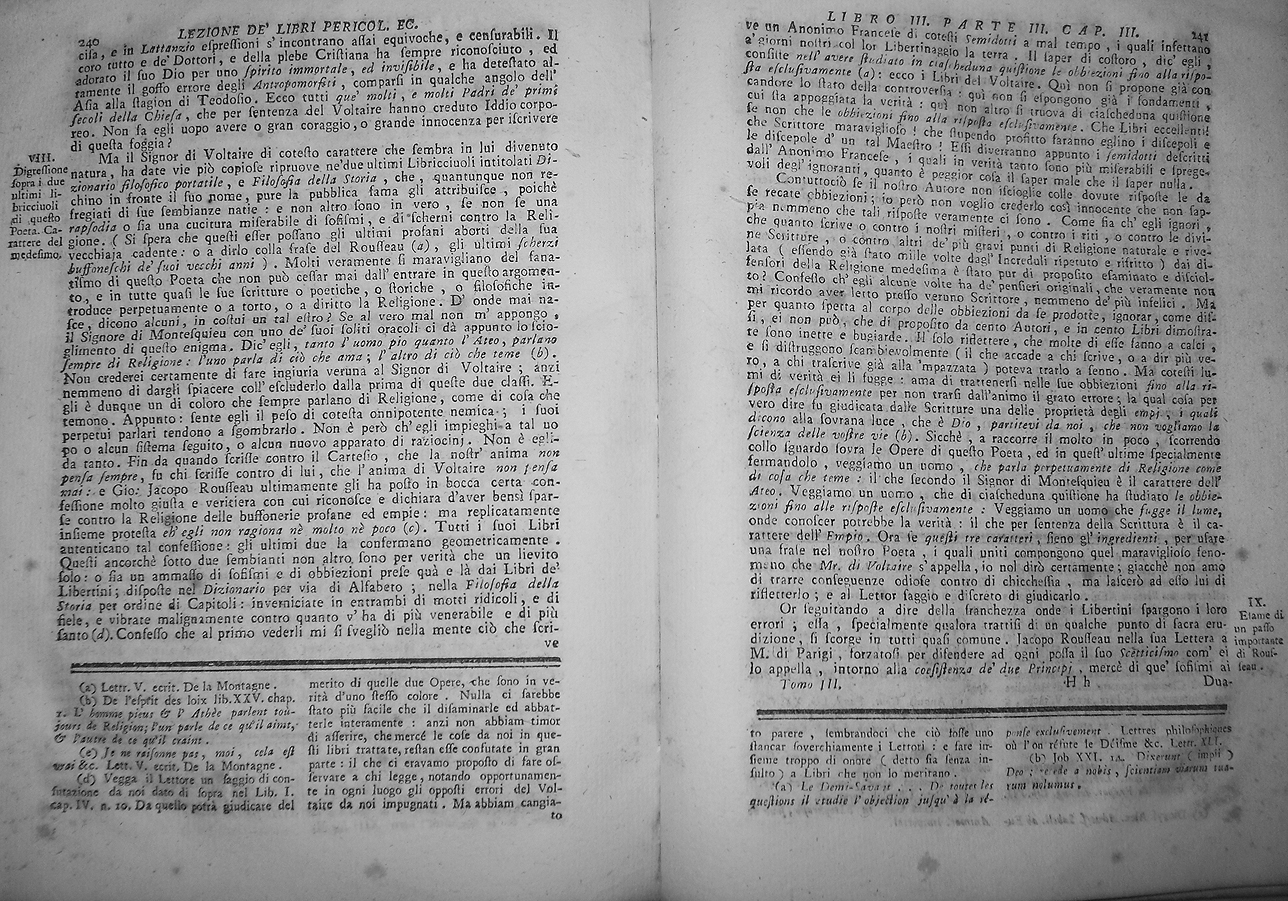 240
LEZIONE DE' LIBRI PERICOL. EC.
cisa, e in Lattanzio espressioni s' incontrano assai equivoche, e censurabili. Il
coro tutto e de' Dottori, e della plebe Cristiana ha sempre riconosciuto, ed
adorato il suo Dio per uno spirito immortale, ed invisibile, e ha detestato al-
tamente il goffo errore degli Antropomorfiti, comparsi in qualche angolo dell'
Asia alla stagion di Teodosio. Ecco tutti que' molti, e molti Padri de' primi
secoli della Chiesa, che per sentenza del Voltaire hanno creduto Iddio corpo-
reo. Non fa egli uopo avere o gran coraggio, o grande innocenza per iscrivere
di questa foggia?
VIII.
Digressione
sopra i due
ultimi li-
bricciuoli
di questo
Poeta. Ca-
rattere del
medesimo.
Ma il Signor di Voltaire di cotesto carattere che sembra in lui divenuto
natura, ha date vie più copiose riprove ne'due ultimi Libricciuoli intitolati Di-
zionario filosofico portatile, e Filosofia della Storia, che, quantunque non re-
chino in fronte il suo nome, pure la pubblica fama gli attribuisce, poichè
fregiati di sue sembianze natie: e non altro sono in vero, se non se una
rapsodia o sia una cucitura miserabile di sofismi, e di scherni contro la Reli-
gione. ( Si spera che questi esser possano gli ultimi profani aborti della sua
vecchiaja cadente: o a dirlo colla frase del Rousseau (a), gli ultimi scherzi
buffoneschi de' suoi vecchi anni ). Molti veramente si maravigliano del fana-
tismo di questo Poeta che non può cessar mai dall' entrare in questo argomen-
to, e in tutte quasi le sue scritture o poetiche, o storiche, o filosofiche in-
troduce perpetuamente o a torto, o a diritto la Religione. D' onde mai na-
sce, dicono alcuni, in costui un tal estro? Se al vero mal non m' appongo,
il Signore di Montesquieu con uno de' suoi soliti oracoli ci dà appunto lo scio-
glimento di questo enigma. Dic' egli, tanto l' uomo pio quanto l' Ateo, parlano
sempre di Religione: l'uno parla di ciò che ama; l' altro di ciò che teme (b).
Non crederei certamente di fare ingiuria veruna al Signor di Voltaire; anzi
nemmeno di dargli spiacere coll' escluderlo dalla prima di queste due classi. E-
gli è dunque un di coloro che sempre parlano di Religione, come di cosa che
temono. Appunto: sente egli il peso di cotesta onnipotente nemica; i suoi
perpetui parlari tendono a sgombrarlo. Non è però ch' egli impieghi a tal uo
po o alcun sistema seguito, o alcun nuovo apparato di raziocinj. Non è egli
da tanto. Fin da quando scrisse contro il Cartesio, che la nostr' anima non
pensa sempre, fu chi scrisse contro di lui, che l' anima di Voltaire non pensa
mai: e Gio: Jacopo Rousseau ultimamente gli ha posto in bocca certa con-
fessione molto giusta e veritiera con cui riconosce e dichiara d'aver bensì spar-
se contro la Religione delle buffonerie profane ed empie: ma replicatamente
insieme protesta ch' egli non ragiona nè molto nè poco (c). Tutti i suoi Libri
autenticano tal confessione: gli ultimi due la confermano geometricamente.
Questi ancorchè sotto due sembianti non altro sono per verità che un lievito
solo: o sia un ammasso di sofismi e di obbiezioni prese quà e là dai Libri de'
Libertini; disposte nel Dizionario per via di Alfabeto; nella Filosofia della
Storia per ordine di Capitoli: inverniciate in entrambi di motti ridicoli, e di
fiele, e vibrate malignamente contro quanto v' ha di più venerabile e di più
santo (d). Confesso che al primo vederli mi si svegliò nella mente ciò che scri-
ve
(a) Lettr. V. ecrit. De la Montagne.
(b) De l'esprit des loix lib. XXV. chap.
1. L' homme pieux & l' Athèe parlent tou-
jours de Religion; l'un parle de ce qu'il aime,
& l'autre de ce qu'il craint.
(c) Je ne raisonne pas, moi, cela est
vrai &c. Lett. V. ecrit. De la Montagne.
(d) Vegga il Lettore un saggio di con-
futazione da noi dato di sopra nel Lib. I.
cap. IV. n. 10. Da quello potrà giudicare del
merito di quelle due Opere, che sono in ve-
rità d'uno stesso colore. Nulla ci sarebbe
stato più facile che il disaminarle ed abbat-
terle interamente: anzi non abbiam timor
di asserire, che mercè le cose da noi in que-
sti libri trattate, restan esse confutate in gran
parte: il che ci eravamo proposto di fare os-
servare a chi legge, notando opportunamen-
te in ogni luogo gli opposti errori del Vol-
taire da noi impugnati. Ma abbiam cangia-
to
LIBRO III. PARTE III. CAP. III.
241
ve un Anonimo Francese di cotesti Semidotti a mal tempo, i quali infettano
a' giorni nostri col lor Libertinaggio la terra. Il saper di costoro, dic' egli,
consiste nell' avere studiato in ciascheduna quistione le obbiezioni fino alla rispo-
sta esclusivamente (a): ecco i Libri del Voltaire. Quì non si propone già con
candore lo stato della controversia: quì non si espongono già i fondamenti,
cui sta appoggiata la verità: quì non altro si truova di ciascheduna quistione
se non che le obbiezioni fino alla risposta esclusivamente. Che Libri eccellenti!
che Scrittore maraviglioso! che stupendo profitto faranno eglino i discepoli e
le discepole d' un tal Maestro! Essi diverranno appunto i semidotti descritti
dall' Anonimo Francese, i quali in verità tanto sono più miserabili e sprege-
voli degl' ignoranti, quanto è peggior cosa il saper male che il saper nulla.
Contuttociò se il nostro Autore non iscioglie colle dovute risposte le da
se recate obbiezioni; io però non voglio crederlo così innocente che non sap-
pia nemmeno che tali risposte veramente ci sono. Come fia ch' egli ignori,
che quanto scrive o contro i nostri misteri, o contro i riti, o contro le divi-
ne Scritture, o contro altri de' più gravi punti di Religione naturale e rive-
lata ( essendo già stato mille volte dagl' Increduli ripetuto e rifritto ) dai di-
fensori della Religione medesima è stato pur di proposito esaminato e disciol-
to? Confesso ch' egli alcune volte ha de' pensieri originali, che veramente non
mi ricordo aver letto presso veruno Scrittore, nemmeno de' più infelici. Ma
per quanto spetta al corpo delle obbiezioni da se prodotte, ignorar, come dis-
si, ei non può, che di proposito da cento Autori, e in cento Libri dimostra-
te sono inette e bugiarde. Il solo riflettere, che molte di esse fanno a calci,
e si distruggono scambievolmente ( il che accade a chi scrive, o a dir più ve-
ro, a chi trascrive già alla 'mpazzata ) poteva trarlo a senno. Ma cotesti lu-
mi di verità ei li fugge: ama di trattenersi nelle sue obbiezioni fino alla ri-
sposta esclusivamente per non trarsi dall'animo il grato errore; la qual cosa per
vero dire fu giudicata dalle Scritture una delle proprietà degli empj, i quali
dicono alla sovrana luce, che è Dio, partitevi da noi, che non vogliamo la
scienza delle vostre vie (b). Sicchè, a raccorre il molto in poco, scorrendo
collo sguardo sovra le Opere di questo Poeta, ed in quest' ultime specialmente
fermandolo, veggiamo un uomo, che parla perpetuamente di Religione come
di cosa che teme: il che secondo il Signor di Montesquieu è il carattere dell'
Ateo. Veggiamo un uomo, che di ciascheduna quistione ha studiato le obbie-
zioni fino alle risposte esclusivamente: Veggiamo un uomo che fugge il lume,
onde conoscer potrebbe la verità: il che per sentenza della Scrittura è il ca-
rattere dell' Empio. Ora se questi tre caratteri, sieno gl' ingredienti, per usare
una frase nel nostro Poeta, i quali uniti compongono quel maraviglioso feno-
meno che Mr. di Voltaire s' appella, io nol dirò certamente; giacchè non amo
di trarre conseguenze odiose contro di chicchessia, ma lascerò ad esso lui di
rifletterlo; e al Lettor saggio e discreto di giudicarlo.
Or seguitando a dire della franchezza onde i Libertini spargono i loro
errori; essa, specialmente qualora trattisi di un qualche punto di sacra eru-
dizione, si scorge in tutti quasi comune. Jacopo Rousseau nella sua Lettera a
M. di Parigi, forzatosi per difendere ad ogni possa il suo Scetticismo com' ei
lo appella, intorno alla coesistenza de' due Principj, mercè di que' sofismi ai
IX.
Esame di
un passo
importante
di Rous-
seau.
Tomo III.
H h
Dua-
to parere, sembrandoci che ciò fosse uno
stancar soverchiamente i Lettori: e fare in-
sieme troppo di onore ( detto sia senza in-
sulto ) a Libri che non lo meritano.
(a) Le Demi-Savant ... De toutes les
questions il etudie l' objection jusqu' à la ré-
ponse exclusivement. Lettres philosophiques
où l'on réfute le Déisme &c. Lettr. XII.
(b) Job XXI. 14. Dixerunt ( impii )
Deo: recede a nobis, scientiam viarum tua-
rum nolumus.